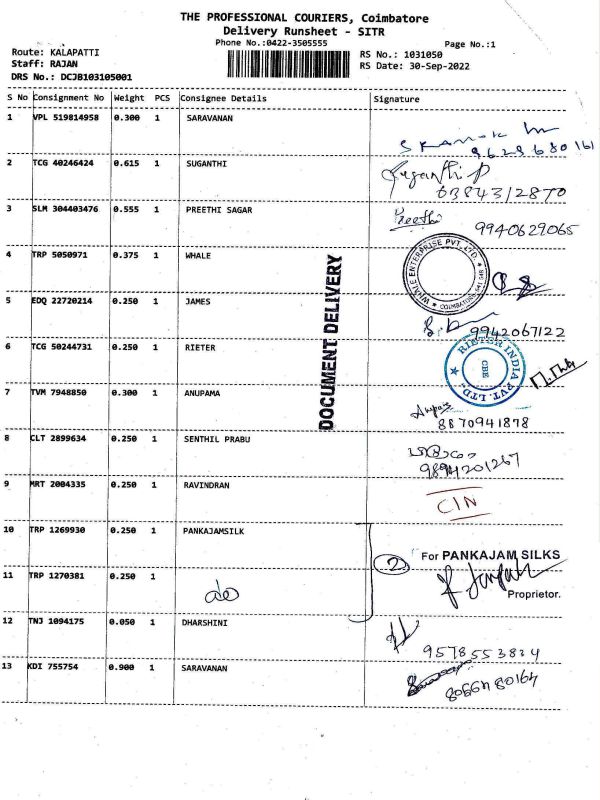 THE PROFESSIONAL COURIERS, Coimbatore
Delivery Runsheet - SITR
Phone No.:0422-3505555
Page No.:1
Route: KALAPATTI
RS No.: 1031050
Staff: RAJAN
RS Date: 30-Sep-2022
DRS No.: DCJB103105001
S No Consignment No Weight PCS Consignee Details Signature
1 VPL 519814958 0.300 1 SARAVANAN
9629680161
2 TCG 40246424 0.615 1 SUGANTHI Suganthi P
6384312870
3 SLM 304403476 0.555 1 PREETHI SAGAR Preethi
9940629065
4 TRP 5050971 0.375 1 WHALE
WHALE ENTERPRISE PVT. LTD.
COIMBATORE-641 048
5 EDQ 22720214 0.250 1 JAMES
9942067122
6 TCG 50244731 0.250 1 RIETER
RIETER INDIA PVT. LTD.
CBE
DOCUMENT DELIVERY
7 TVM 7948850 0.300 1 ANUPAMA
8870941878
8 CLT 2899634 0.250 1 SENTHIL PRABU
9894201267
9 MRT 2004335 0.250 1 RAVINDRAN
CIN
10 TRP 1269930 0.250 1 PANKAJAMSILK
2
For PANKAJAM SILKS
11 TRP 1270381 0.250 1 do
Proprietor.
12 TNJ 1094175 0.050 1 DHARSHINI
9578553834
13 KDI 755754 0.900 1 SARAVANAN